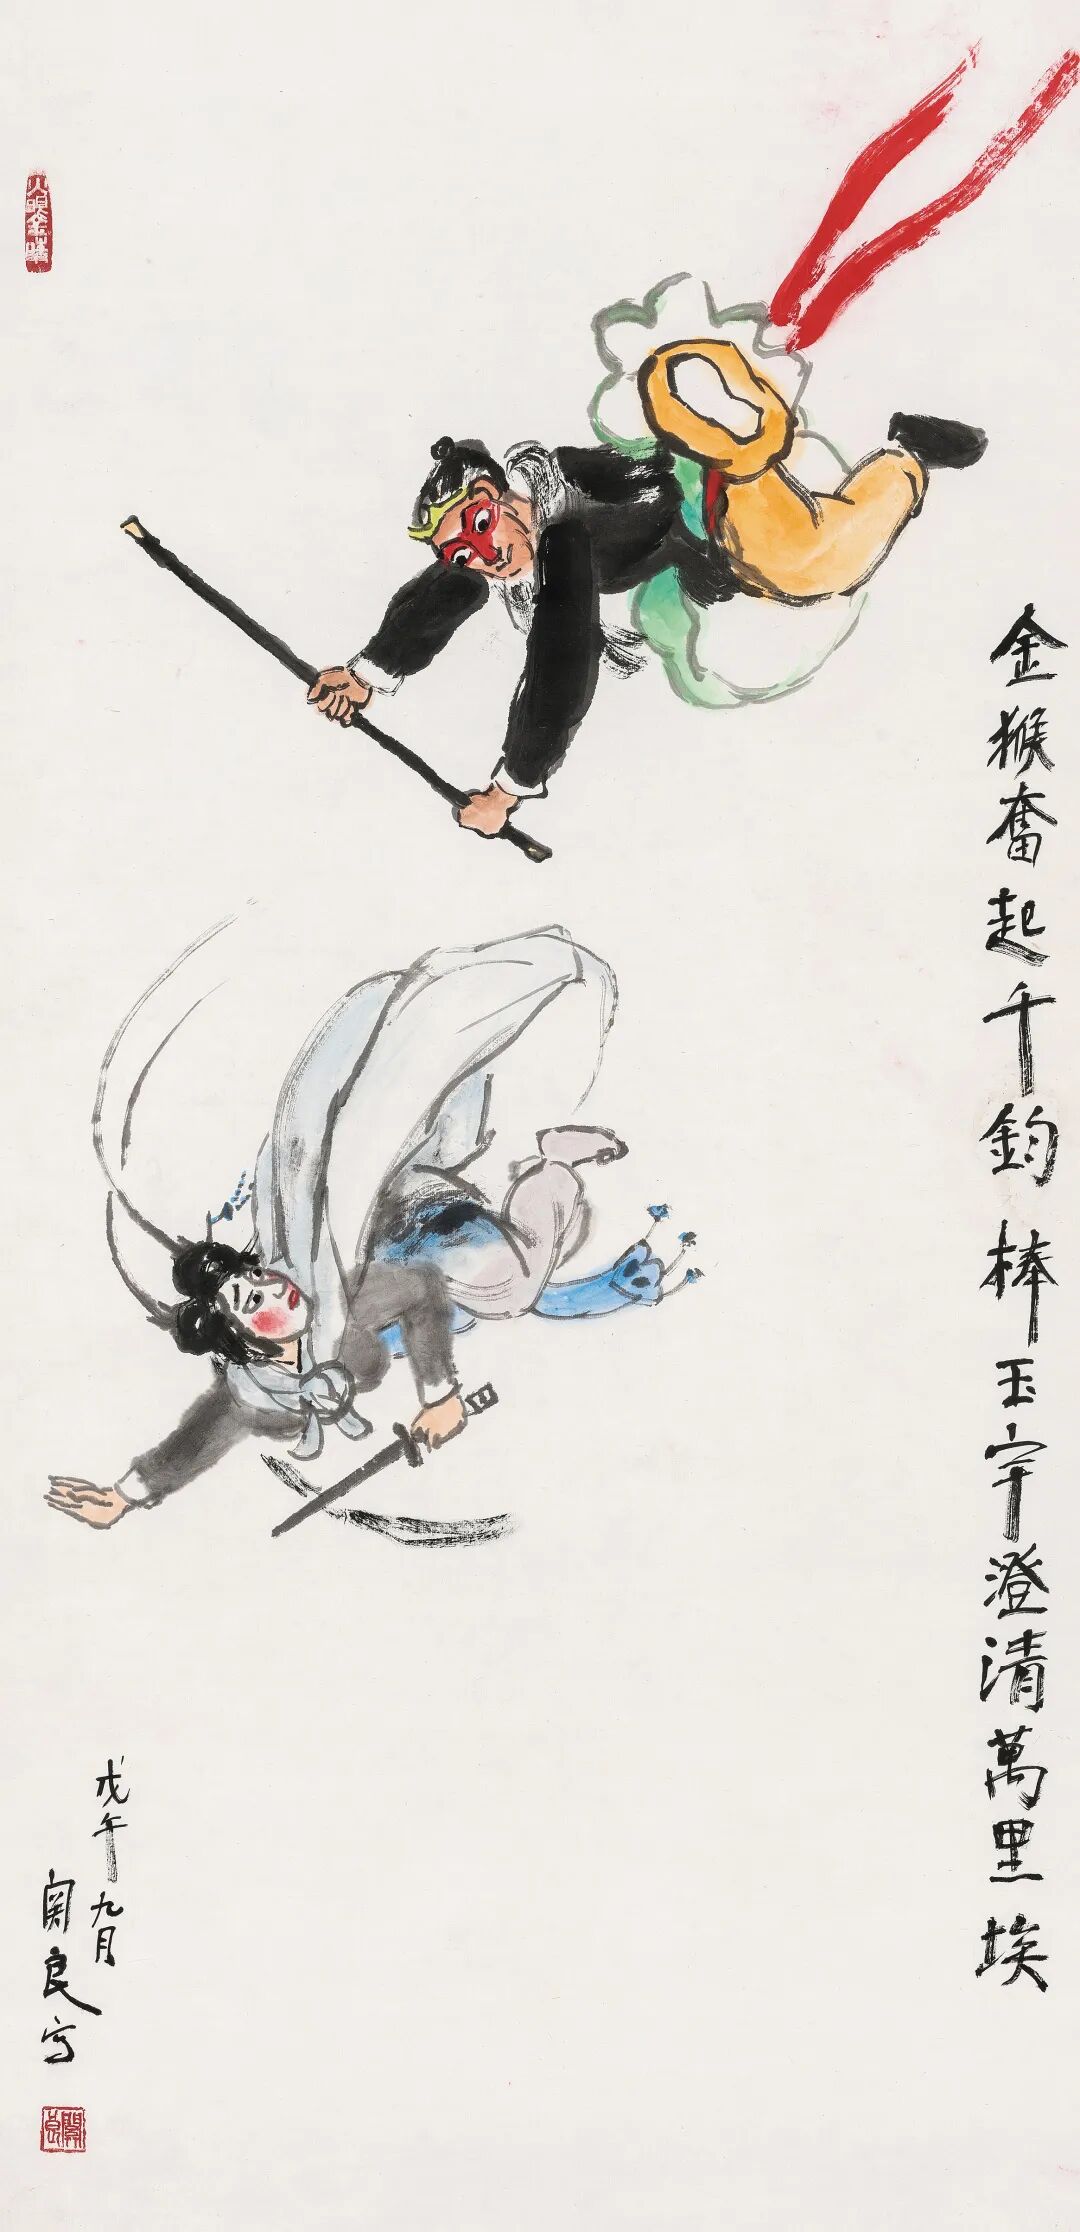 金猴奮起千鈞棒玉宇澄清萬里埃
戊午九月
関良寫
関良